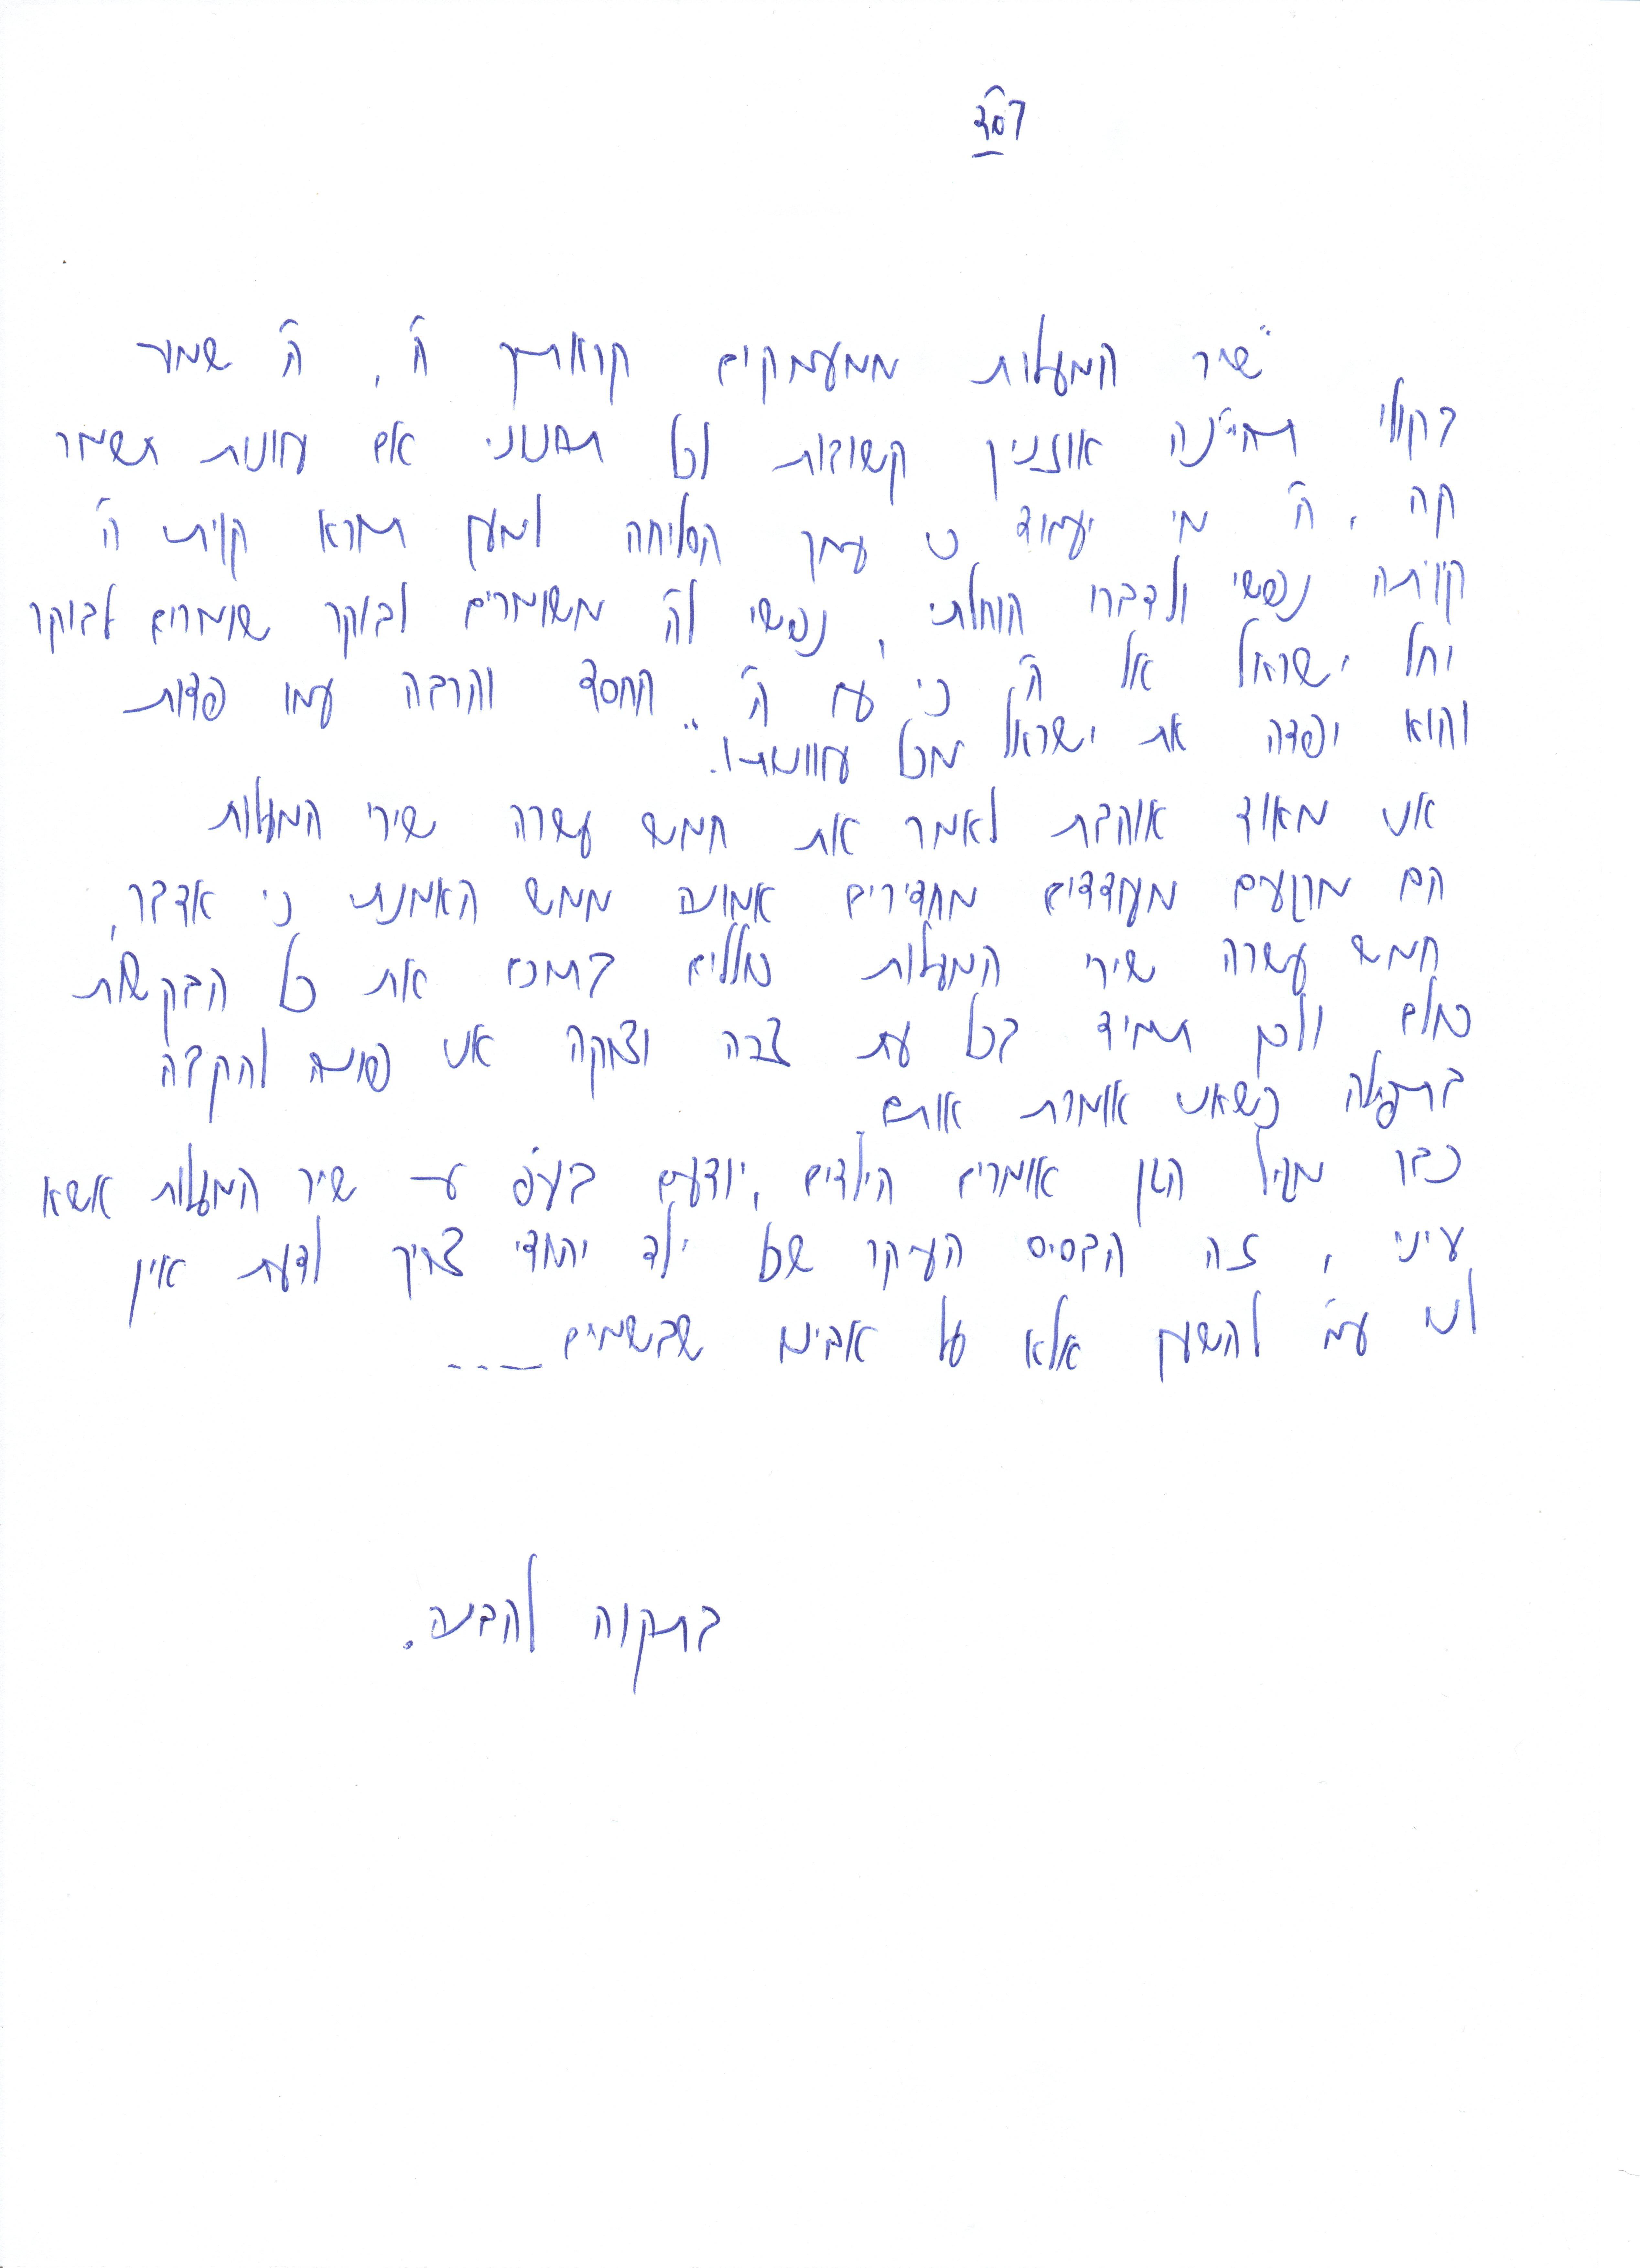 בס"ד
"שיר המעלות ממעמקים קראתיך ה', ה' שמעה
בקולי תהיינה אוזניך קשובות לכל תחנוני אם עוונות תשמר
קה, ה' מי יעמוד כי עמך הסליחה למען תורא קויתי ה'
קויתה נפשי ולדברו הוחלתי, נפשי לה' משומרים לבוקר שומרים לבוקר
יחל ישראל אל ה' כי עם ה' החסד והרבה עמו פדות
והוא יפדה את ישראל מכל עוונותיו."
אני מאוד אוהבת לאמר את חמש עשרה שירי המעלות
הם מרגעים מעודדים מחדירים אמונה ממש האמנתי כי אדבר,
חמש עשרה שירי המעלות כוללים בתוכם את כל הבקשות
כולם ולכן תמיד בכל עת צרה וצוקה אני פונה להקב"ה
בתפילה כשאני אומרת אותם.
כבר מגיל הגן אומרים הילדים, יודעים בע"פ את שיר המעלות אשא
עיני, זה הבסיס העיקר שכל ילד יהודי צריך לדעת אין
לנו ע"מ להשען אלא על אבינו שבשמים....
בתקווה להבנה.